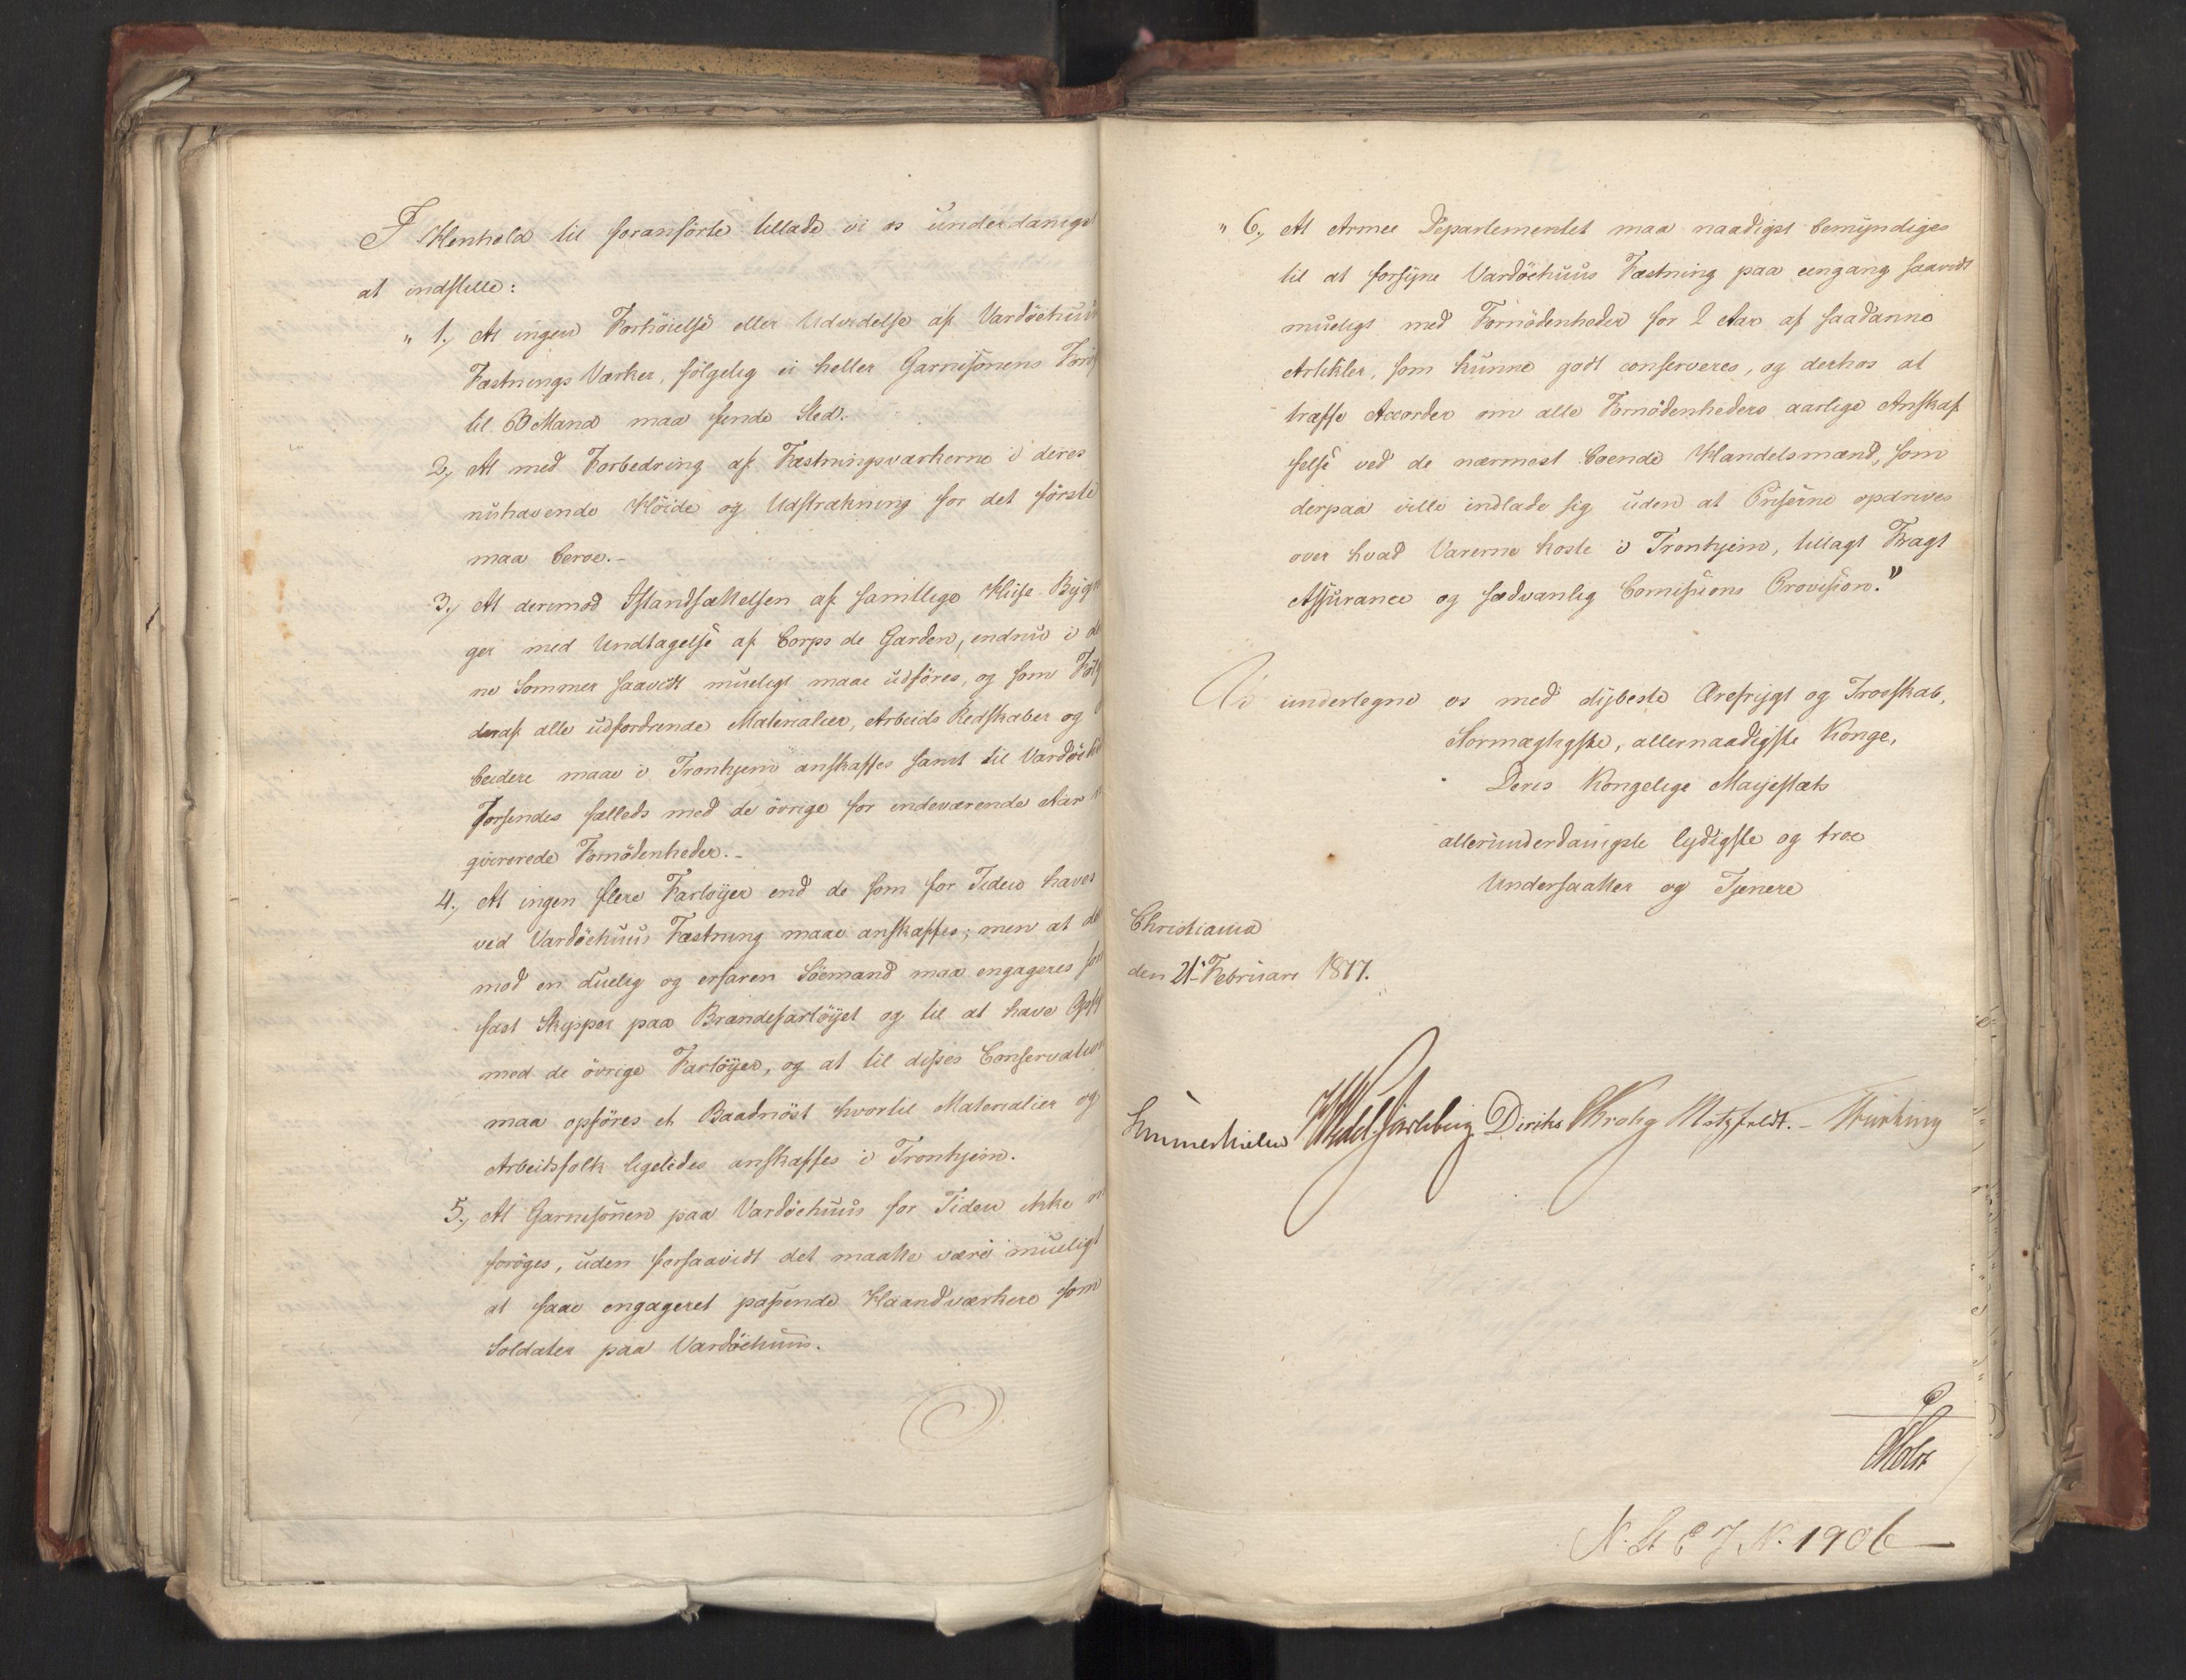 I Henhold til foranførte tillade vi os underdanigst
at indstille:
" 1., At ingen Forhøielse eller Udvidelse af Vardøehuus
Fæstnings Værker, følgelig ei heller Garnisonens
til 60 Mand maa finde Sted.
2., At med Forbedring af Fæstningsværkerne i deres
nuhavende Høide og Udstrækning for det første
maa beroe.-
3., At derimod Istandsættelsen af samtlige Huse Byg
ger med Undtagelse af Corps de Garden, endnu i de
ne Sommer saavidt mueligt maae udføres, og som Følg
deraf alle udfordrende Materialier, Arbeids Redskaber og
beidere maae i Tronhjem anskaffes samt til Vardøe
forsendes fælleds med de øvrige for indeværende Aar
qvirerede Fornødenheder.-
4., At ingen flere Fartøyer end de som for Tiden haves
ved Vardøehuus Fæstning maae anskaffes; men at de
mod en duelig og erfaren Søemand maa engageres som
fast Skipper paa Brændefartøyet og til at have Opsy
med de øvrige Fartøyer, og at til disses Conservation
maa opføres et Baadnøst hvortil Materialier og
Arbeidsfolk ligeledes anskaffes i Tronhjem.
5., At Garnisonen paa Vardøehuus for Tiden ikke
forøges, uden forsaavidt det maatte være mueligt
at faae engageret passende Haandværkere som
Soldater paa Vardøehuus.
" 6., At Armee Departementet maa naadigst bemyndiges
til at forsyne Vardøehuus Fæstning paa eengang saavidt
mueligt med Fornødenheder for 2 Aar af saadanne
Artikler, som kunne godt conserveres, og derhos at
træffe Accorder om alle Fornødenheders aarlige Anskaf
felse ved de nærmest boende Handelsmænd, som
derpaa ville indlade sig uden at Priserne opdrives
over hvad Varerne koste i Tronhjem, tillagt Fragt
Assurance og sædvanlig Comissions Provision."
Vi undertegne os med dybeste Ærefrygt og Troeskab,
Stormægtigste, allernaadigste Konge,
Deres Kongelige Majestæts
allerunderdanigste lydigste og troe
Undersaatter og Tjenere
Christiania
den 21 Februari 1817.
Sommerhielm Wedel Jarlsberg Diriks Krohg Motzfeldt.-
Holst
N. St E J. N. 1906